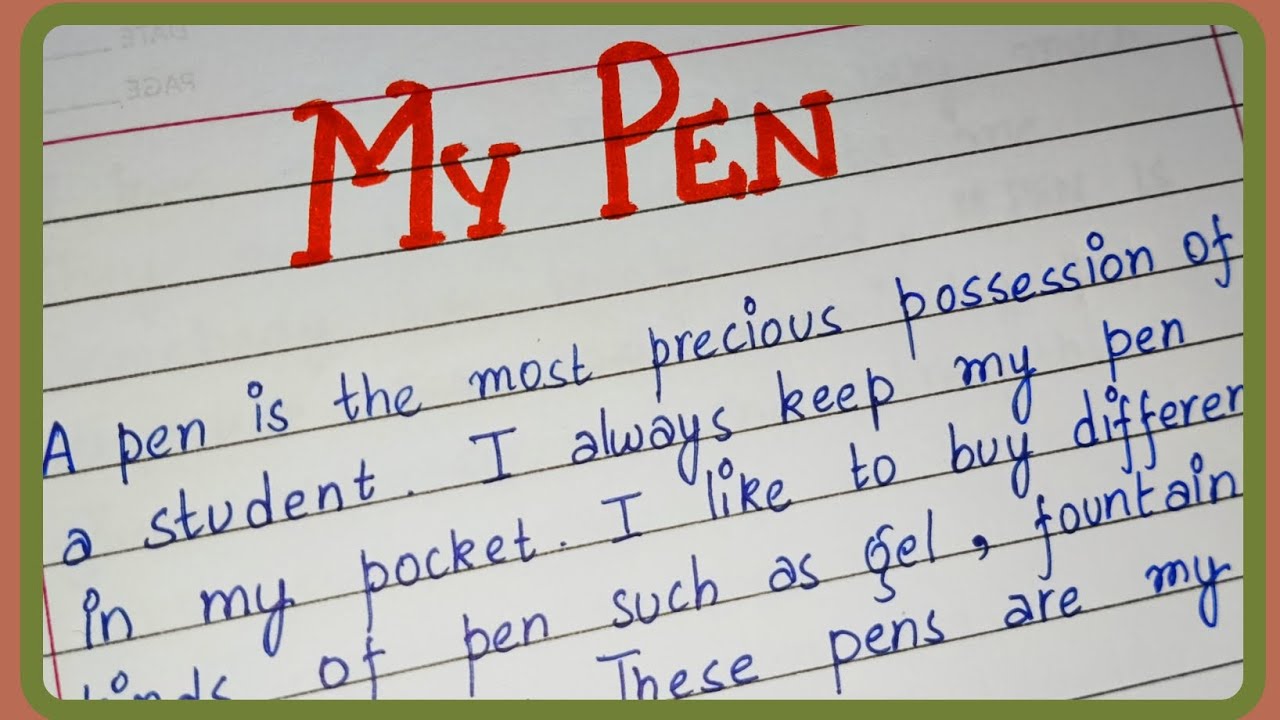 DATE
PAGE
MY PEN
A pen is the most precious possession of
a student. I always keep my pen
in my pocket. I like to buy differen
kinds of pen such as gel, fountain
These pens are my